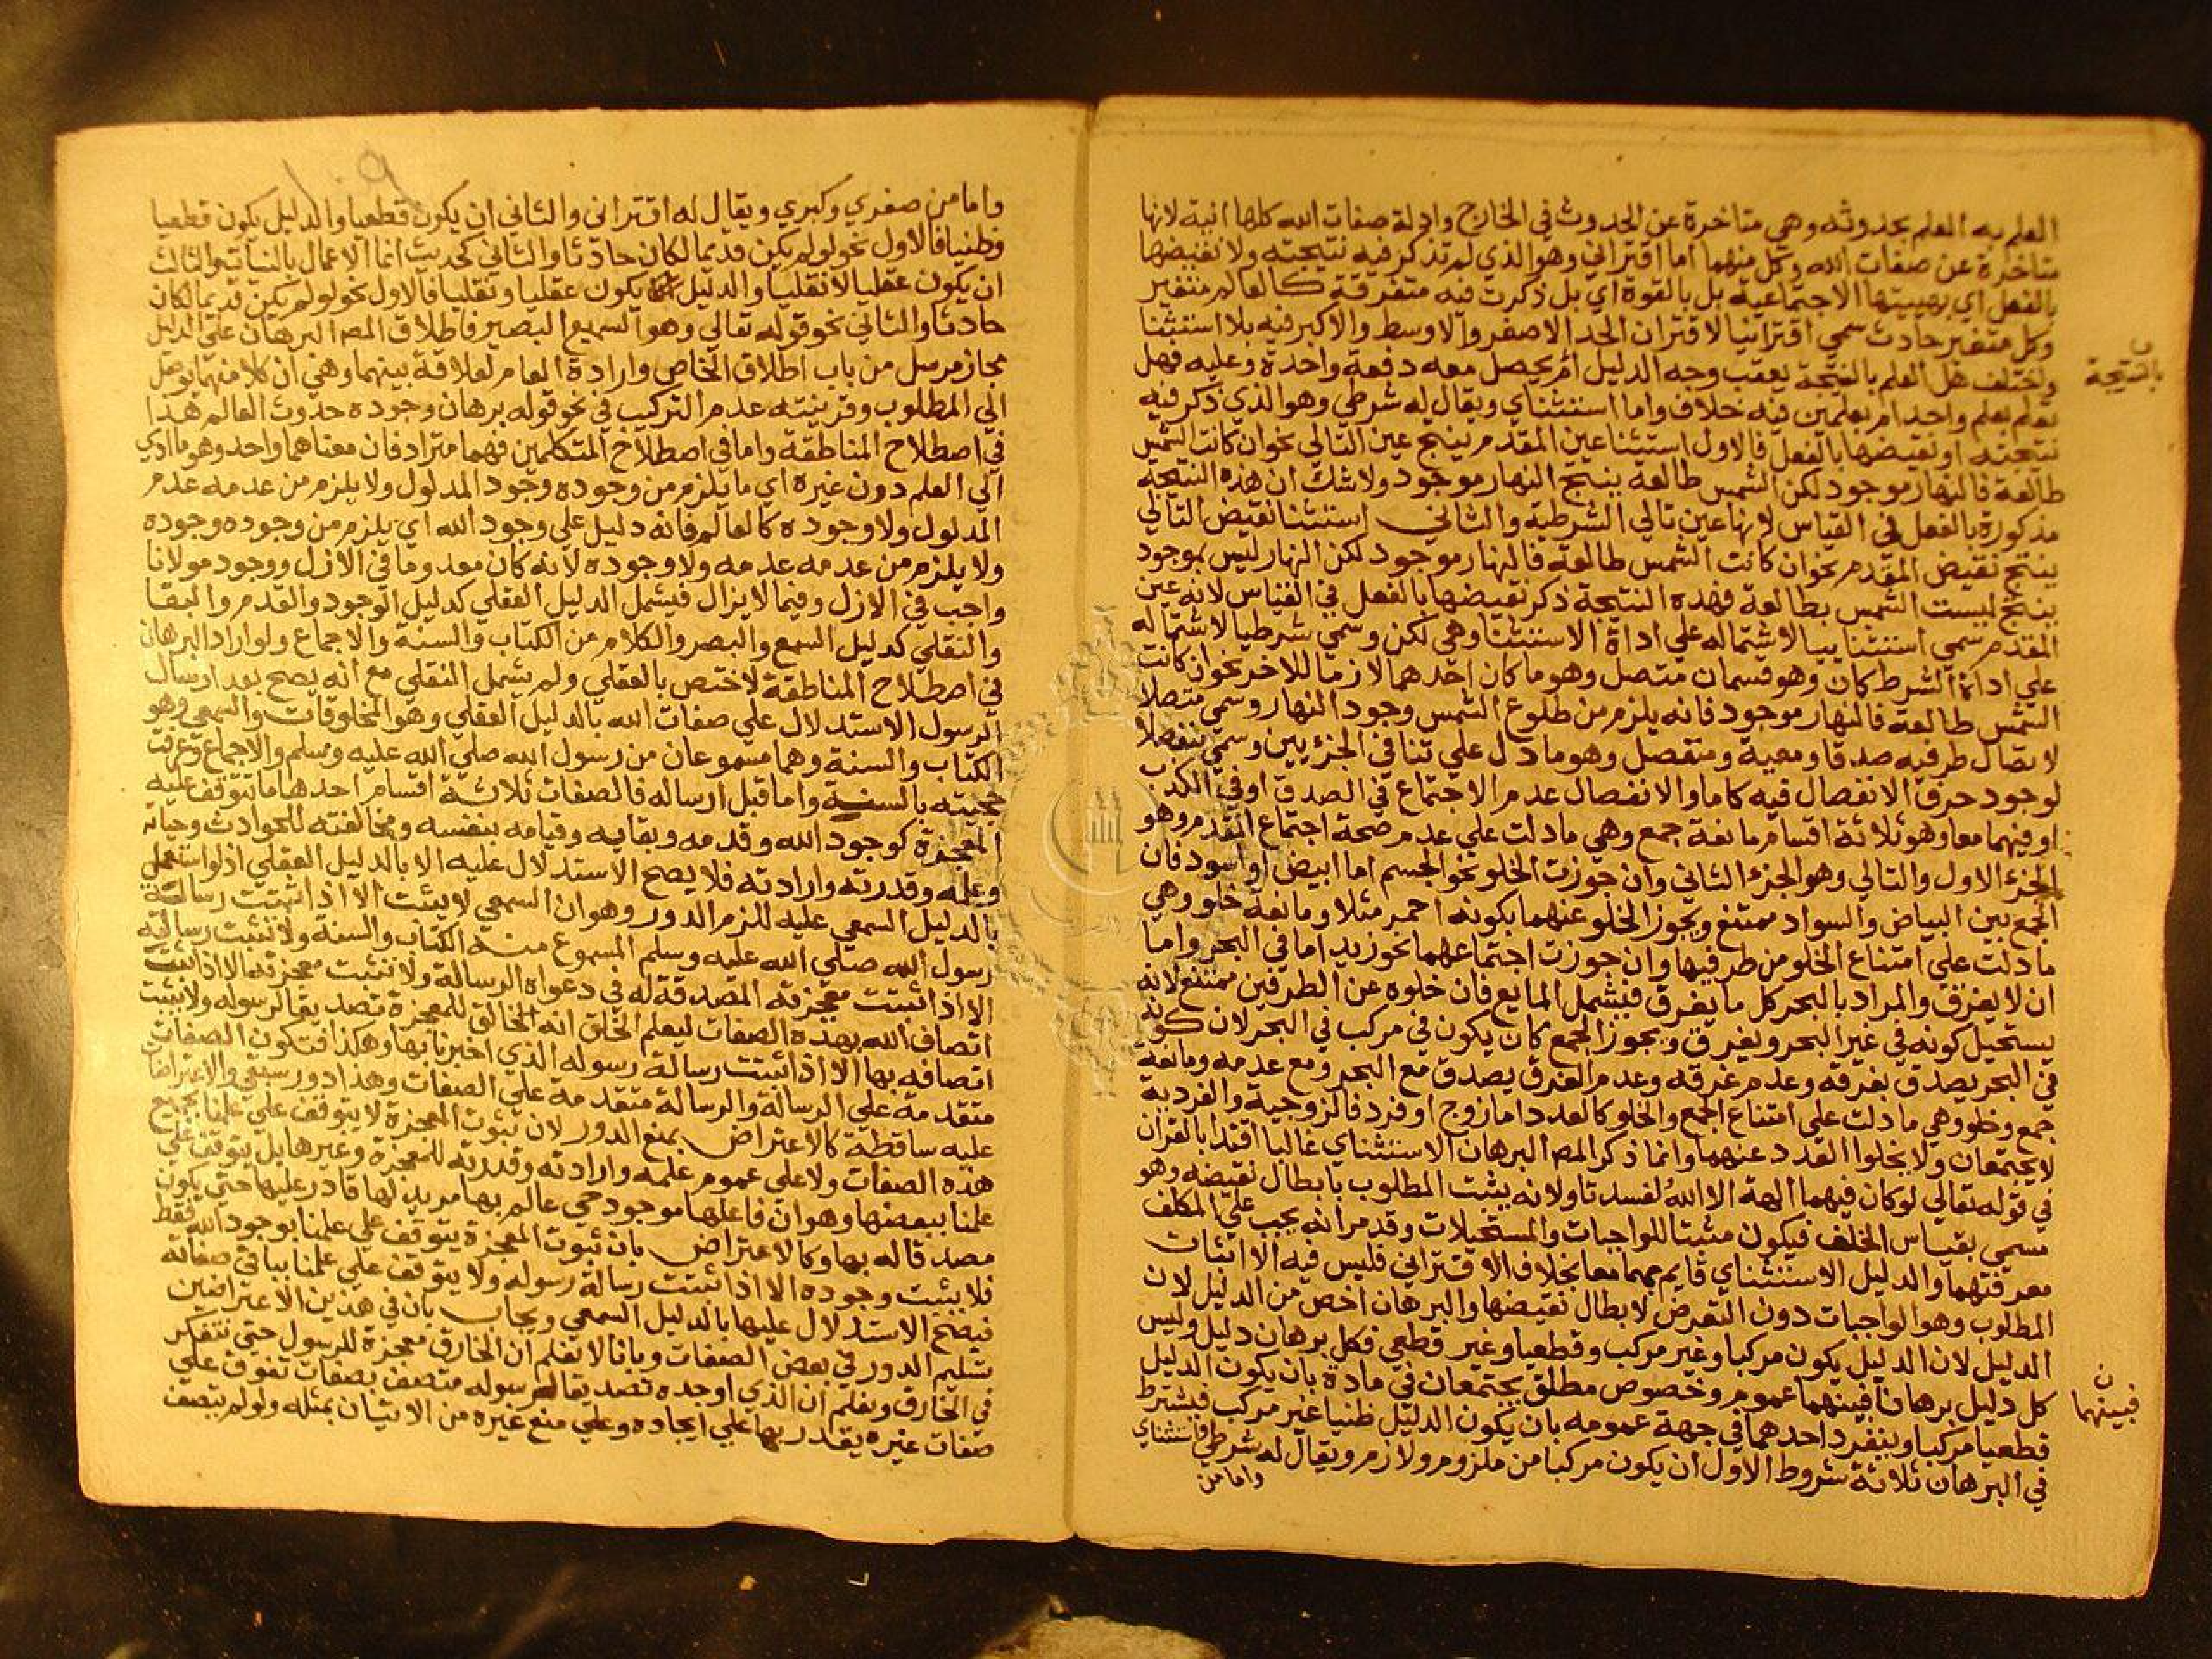 العلم به العلم بحدوثه وهي متاخرة عن الحدوث في الخارج وادلة صفات الله كلها انية لانها
متاخرة عن صفات الله وكل منهما اما اقتراني وهو الذي لم تذكر فيه نتيجته ولا نقيضها
بالفعل اي بهييتها الاجتماعية بل بالقوة اي بل ذكرت فيه متفرقة كالعالم متغير
وكل متغير حادث سمي اقترانيا لاقتران الحد الاصغر والاوسط والاكبر فيه بلا استثنا
واختلف هل العلم بالنتيجة يعقب وجه الدليل ام يحصل معه دفعة واحدة وعليه فهل
بالنتيجة
يعلم بعلم واحد ام بعلمين فيه خلاف واما استثناي ويقال له شرطي وهو الذي ذكر فيه
نتيجته او نقيضها بالفعل فالاول استثنا عين المقدم ينتج عين التالي نحو ان كانت الشمس
طالعة فالنهار موجود لكن الشمس طالعة ينتج النهار موجود ولا شك ان هذه النتيجة
مذكورة بالفعل في القياس لانها عين تالي الشرطية والثاني استثنا نقيض التالي
ينتج نقيض المقدم نحو ان كانت الشمس طالعة فالنهار موجود لكن النهار ليس بموجود
ينتج ليست الشمس بطالعة فهذه النتيجة ذكر نقيضها بالفعل في القياس لانه عين
المقدم سمي استثناييا لاشتماله علي اداة الاستثنا وهي لكن وسمي شرطيا لاشتماله
علي اداة الشرط كان وهو قسمان متصل وهو ما كان احدهما لازما للاخر نحو ان كانت
الشمس طالعة فالنهار موجود فانه يلزم من طلوع الشمس وجود النهار وسمي متصلا
لاتصال طرفيه صدقا ومعية ومنفصل وهو ما دل علي تنافي الجزءيين وسمي منفصلا
لوجود حرف الانفصال فيه كاما والانفصال عدم الاجتماع في الصدق او في الكذب
او فيهما معا وهو ثلاثة اقسام مانعة جمع وهي ما دلت علي عدم صحة اجتماع المقدم وهو
الجزء الاول والتالي وهو الجزء الثاني وان جوزت الخلو نحو الجسم اما ابيض او اسود فان
الجمع بين البياض والسواد ممتنع ويجوز الخلو عنهما بكونه احمر مثلا ومانعة خلو وهي
ما دلت علي امتناع الخلو من طرفيها وان جوزت اجتماعهما نحو زيد اما في البحر واما
ان لا يغرق والمراد بالبحر كل ما يغرق فيشمل المايع فان خلوه عن الطرفين ممتنع لانه
يستحيل كونه في غير البحر ويغرق ويجوز الجمع كان يكون في مركب في البحر لان كونه
في البحر يصدق بغرقه وعدم غرقه وعدم الغرق يصدق مع البحر ومع عدمه ومانعة
جمع وخلو وهي ما دلت علي امتناع الجمع والخلو كالعدد اما زوج او فرد فالزوجية والفردية
لا يجتمعان ولا يخلوا العدد عنهما وانما ذكر المص البرهان الاستثناي غالبا اقتدا بالقران
في قوله تعالي لو كان فيهما الهة الا الله لفسدتا ولانه يثبت المطلوب بابطال نقيضه وهو
مسمي بقياس الخلف فيكون مثبتا للواجبات والمستحيلات وقد مر انه يجب علي المكلف
معرفتهما والدليل الاستثناي قايم بهما معا بخلاف الاقتراني فليس فيه الا اثبات
المطلوب وهو الواجبات دون التعرض لابطال نقيضها والبرهان اخص من الدليل لان
الدليل لان الدليل يكون مركبا وغير مركب وقطعيا وغير قطعي فكل برهان دليل وليس
كل دليل برهانا فبينهما عموم وخصوص مطلق يجتمعان في مادة بان يكون الدليل
فبينهما
قطعيا مركبا وينفرد احدهما في جهة عمومه بان يكون الدليل ظنيا غير مركب فيشترط
في البرهان ثلاثة شروط الاول ان يكون مركبا من ملزوم ولازم ويقال له شرطي واستثناي
واما من
واما من صغري وكبري ويقال له اقتراني والثاني ان يكون قطعيا والدليل يكون قطعيا
وظنيا فالاول نحو لو لم يكن قديما لكان حادثا والثاني كحديث انما الاعمال بالنيات والثالث
ان يكون عقليا لا نقليا والدليل يكون عقليا ونقليا فالاول نحو لو لم يكن قديما لكان
حادثا والثاني نحو قوله تعالي وهو السميع البصير فاطلاق المص البرهان علي الدليل
مجاز مرسل من باب اطلاق الخاص وارادة العام لعلاقة بينهما وهي ان كلا منهما يوصل
الي المطلوب وقرينته عدم التركيب في نحو قوله برهان وجوده حدوث العالم هذا
في اصطلاح المناطقة واما في اصطلاح المتكلمين فهما مترادفان معناهما واحد وهو ما ادي
الي العلم دون غيره اي ما يلزم من وجوده وجود المدلول ولا يلزم من عدمه عدم
المدلول ولا وجوده كالعالم فانه دليل علي وجود الله اي يلزم من وجوده وجوده
ولا يلزم من عدمه عدمه ولا وجوده لانه كان معدوما في الازل ووجود مولانا
واجب في الازل وفيما لا يزال فيشمل الدليل العقلي كدليل الوجود والقدم والبقا
والنقلي كدليل السمع والبصر والكلام من الكتاب والسنة والاجماع ولو اراد البرهان
في اصطلاح المناطقة لاختص بالعقلي ولم يشمل النقلي مع انه يصح بعد ارسال
الرسول الاستدلال علي صفات الله بالدليل العقلي وهو المخلوقات والسمعي وهو
الكتاب والسنة وهما مسموعان من رسول الله صلي الله عليه وسلم والاجماع وعرفت
حجيته بالسنة واما قبل ارساله فالصفات ثلاثة اقسام احدها ما تتوقف عليه
المعجزة كوجود الله وقدمه وبقايه وقيامه بنفسه ومخالفته للحوادث وحياته
وعلمه وقدرته وارادته فلا يصح الاستدلال عليه الا بالدليل العقلي اذ لو استعمل
بالدليل السمعي عليه للزم الدور وهو ان السمعي لا يثبت الا اذا ثبتت رسالة
رسول الله صلي الله عليه وسلم المسموع منه الكتاب والسنة ولا تثبت رسالته
الا اذا ثبتت معجزته المصدقة له في دعواه الرسالة ولا تثبت معجزته الا اذا ثبت
اتصاف الله بهذه الصفات ليعلم الخلق انه الخالق للمعجزة تصديقا لرسوله ولا يثبت
اتصافه بها الا اذا ثبتت رسالة رسوله الذي اخبرنا بها وهكذا فتكون الصفات
متقدمة علي الرسالة والرسالة متقدمة علي الصفات وهذا دور سبقي والاعتراضات
عليه ساقطة كالاعتراض بمنع الدور لان ثبوت المعجزة لا يتوقف علي علمنا بجميع
هذه الصفات ولا علي عموم علمه وارادته وقدرته للمعجزة وغيرها بل يتوقف علي
علمنا ببعضها وهو ان فاعلها موجود حي عالم بها مريد لها قادر عليها حتي يكون
مصدقا له بها وكالاعتراض بان ثبوت المعجزة يتوقف علي علمنا بوجود الله فقط
فلا يثبت وجوده الا اذا ثبتت رسالة رسوله ولا يتوقف علي علمنا بباقي صفاته
فيصح الاستدلال عليها بالدليل السمعي ويجاب بان في هذين الاعتراضين
تسليم الدور في بعض الصفات وبانا لا نعلم ان الخارق معجزة للرسول حتي نتفكر
في الخارق ونعلم ان الذي اوجده تصديقا لرسوله متصف بصفات تفوق علي
صفات غيره يقدر بها علي ايجاده وعلي منع غيره من الاتيان بمثله ولو لم يتصف